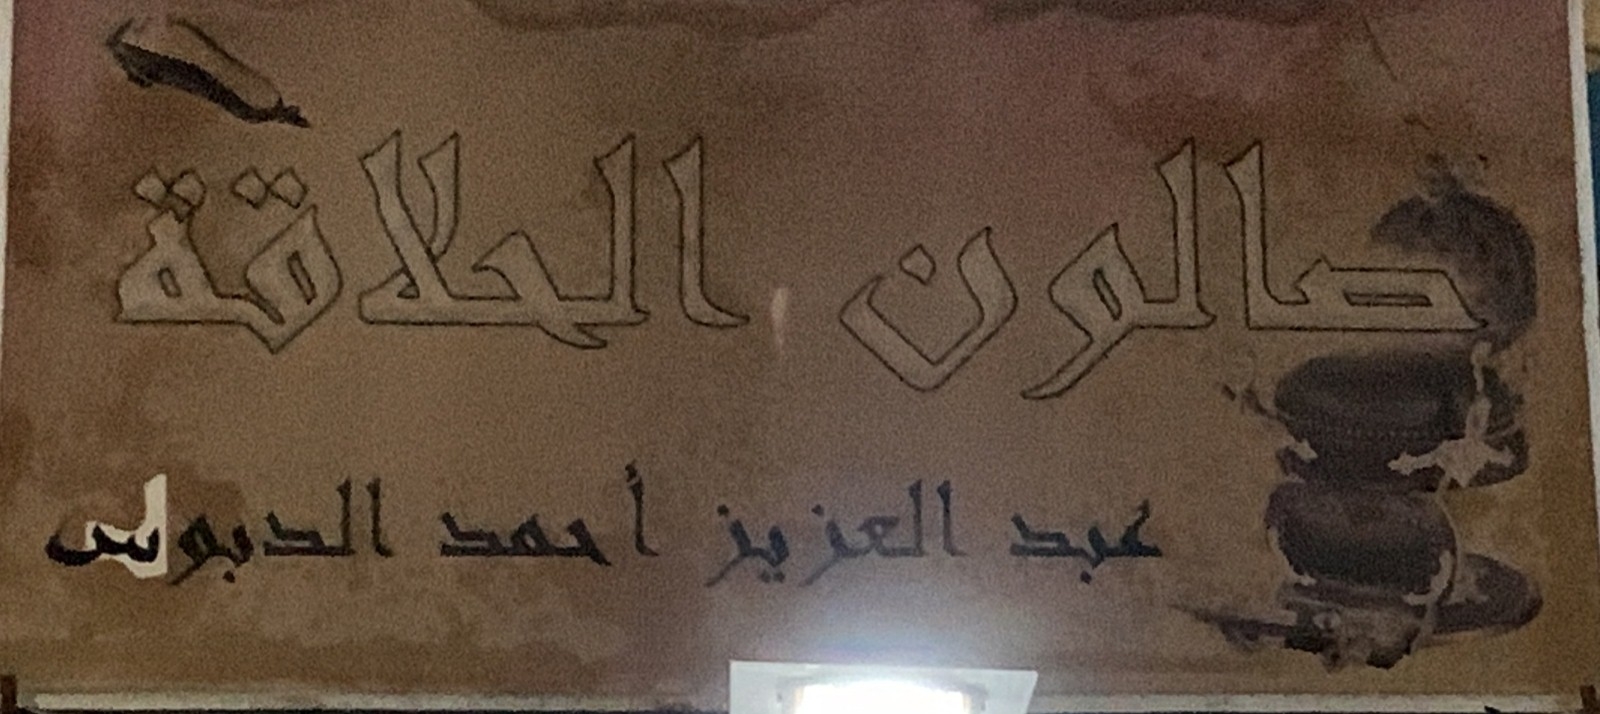 صالون الحلاقة
عبد العزيز أحمد الدبوس